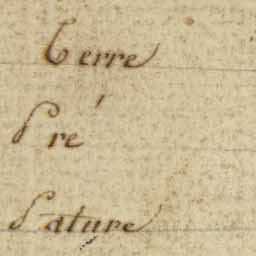 Terre
Pré
Pature